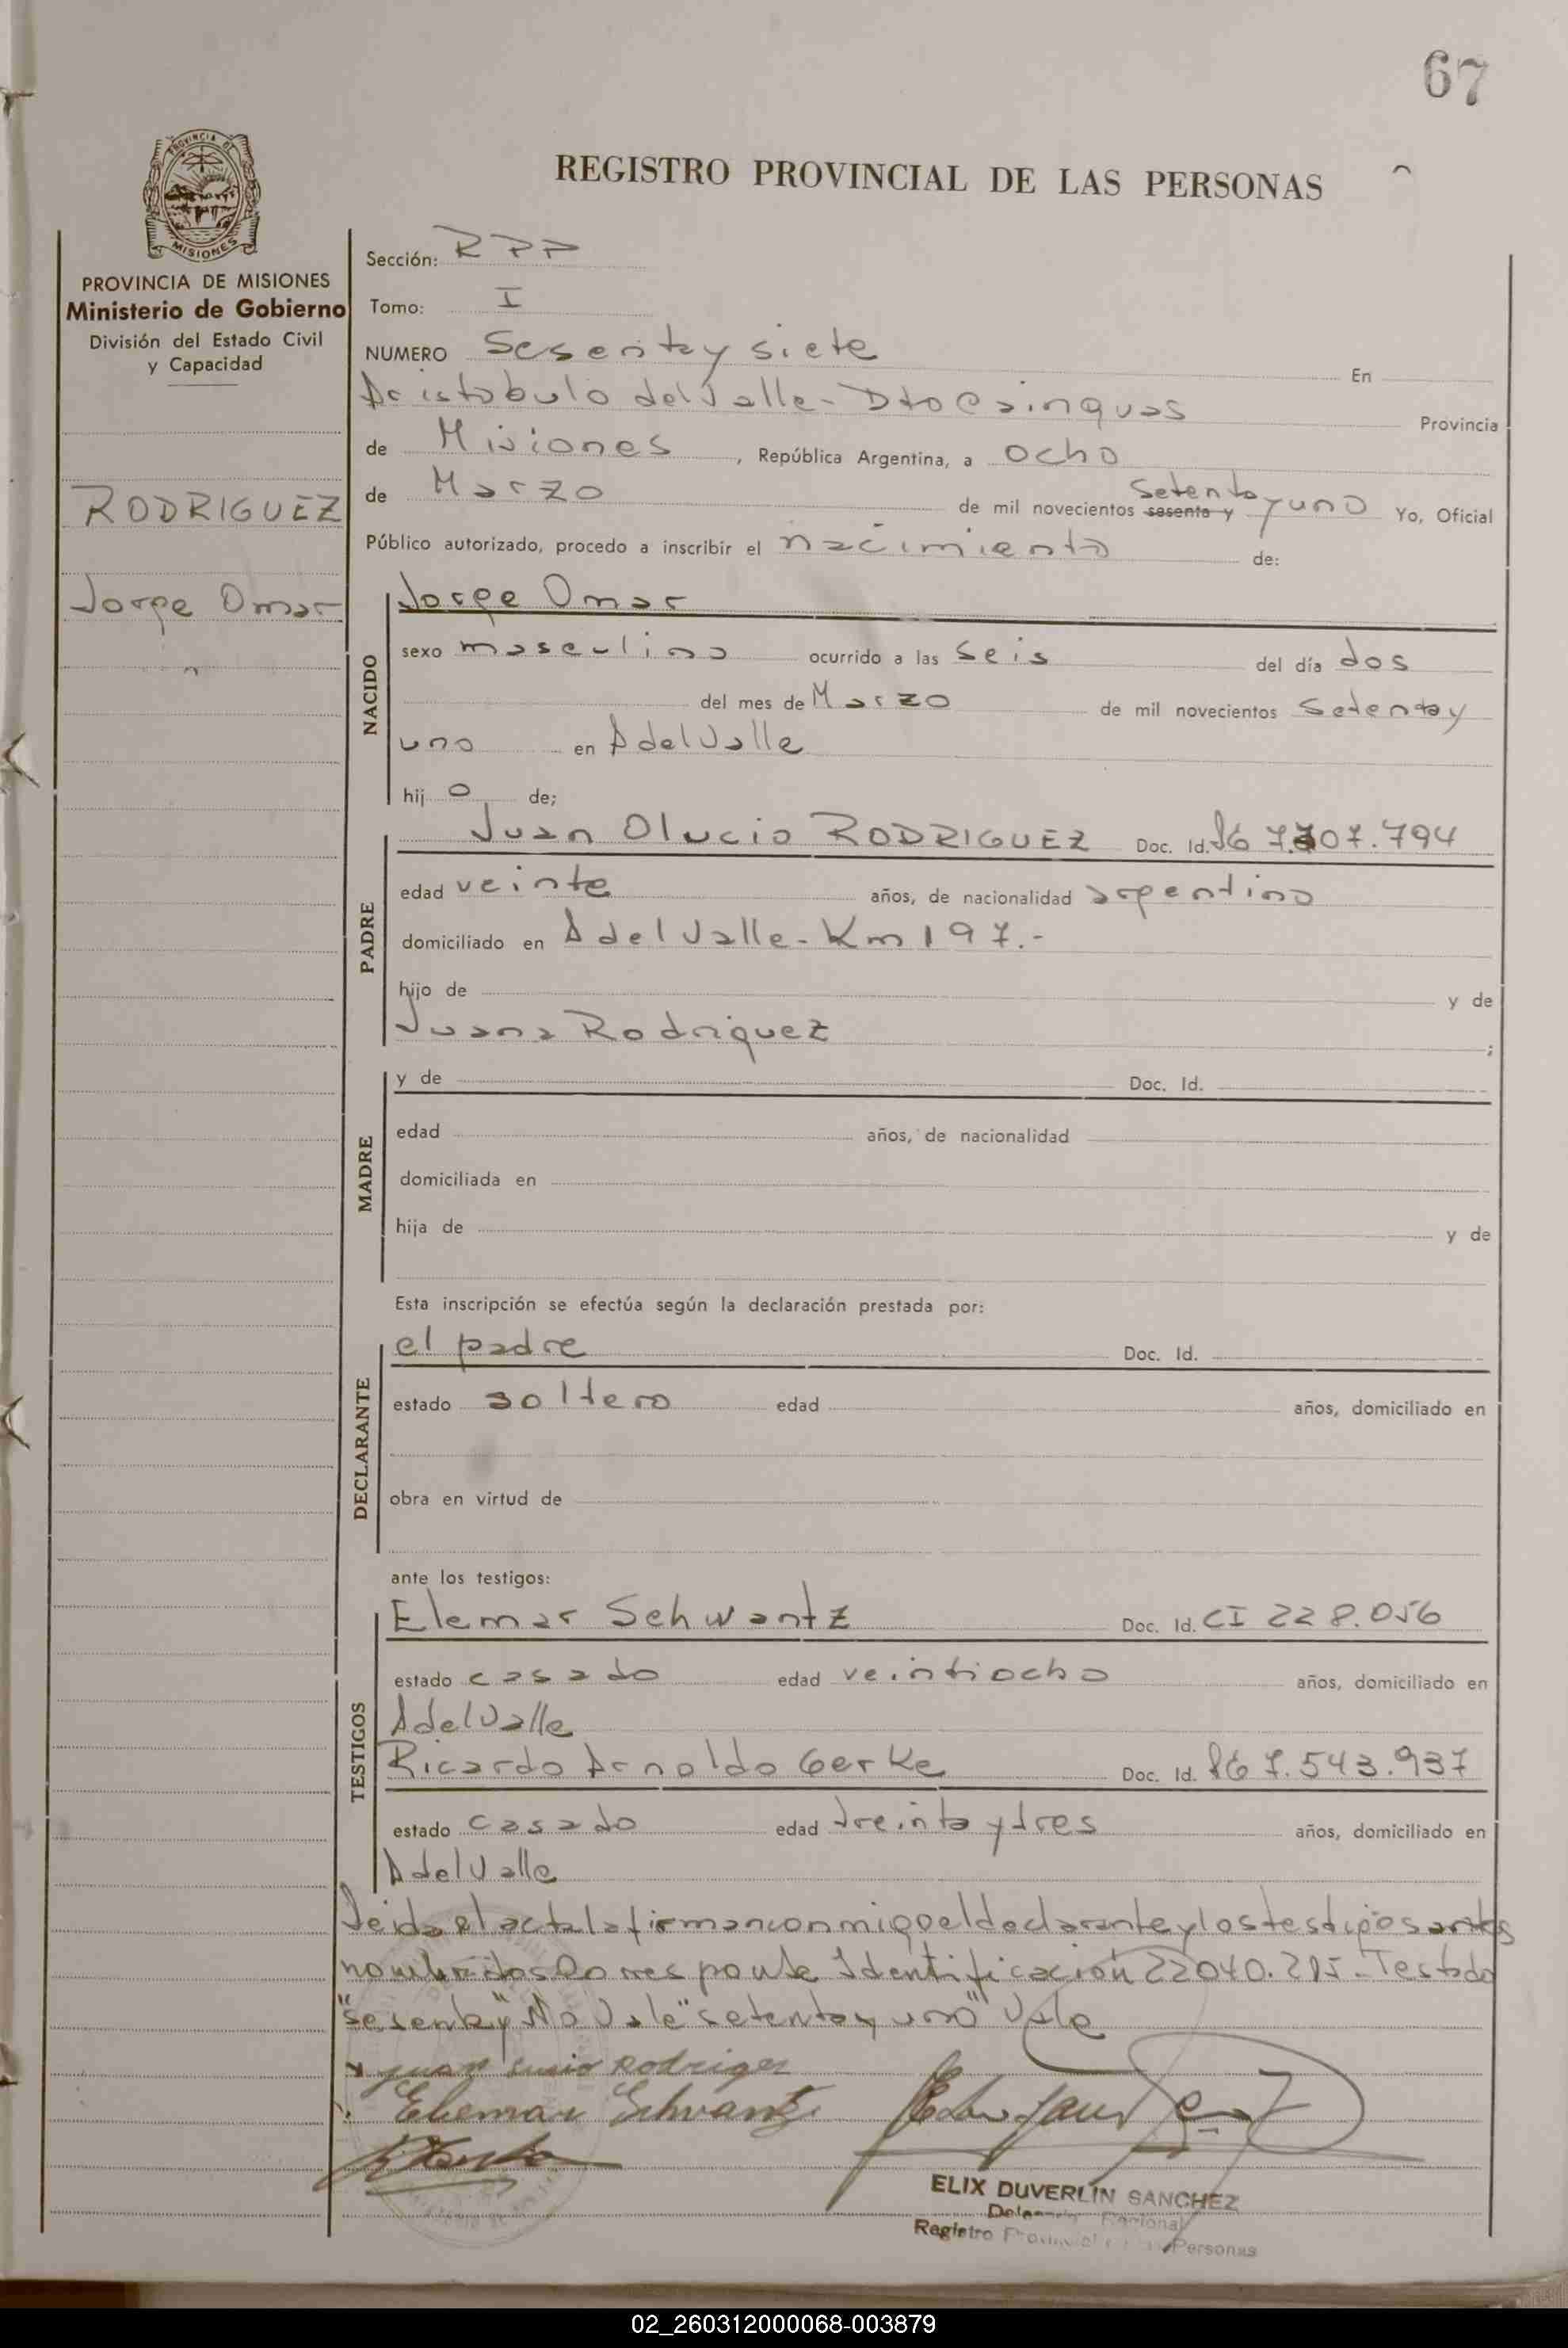 67
REGISTRO PROVINCIAL DE LAS PERSONAS
PROVINCIA DE MISIONES
PROVINCIA DE MISIONES
Ministerio de Gobierno
División del Estado Civil
y Capacidad
RODRIGUEZ
Jorge Omar
Sección: RPP
Tomo: I
NUMERO Sesenta y siete En
Aristobulo del Valle - Dto Cainguas Provincia
de Misiones, República Argentina, a ocho
de Marzo de mil novecientos sesenta y setenta y uno Yo, Oficial
Público autorizado, procedo a inscribir el nacimiento de:
NACIDO
Jorge Omar
sexo masculino ocurrido a las seis del día dos
del mes de Marzo de mil novecientos setenta y
uno en A del Valle
hij o de;
PADRE
Juan Olucio RODRIGUEZ Doc. Id. 07.794
edad veinte años, de nacionalidad argentino
domiciliado en A del Valle - Km 197.-
hijo de y de
Juana Rodriguez ;
MADRE
y de Doc. Id.
edad años, de nacionalidad
domiciliada en
hija de y de
Esta inscripción se efectúa según la declaración prestada por:
DECLARANTE
el padre Doc. Id.
estado soltero edad años, domiciliado en
obra en virtud de
ante los testigos:
TESTIGOS
Elemar Schwantz Doc. Id. CI 228.056
estado casado edad veintiocho años, domiciliado en
A del Valle
Ricardo Arnoldo Gerke Doc. Id. 7.543.937
estado casado edad treinta y tres años, domiciliado en
A del Valle
Leida el acta la firman conmigo el declarante y los testigos antes
nombrados Corresponde Identificación 22040.215 - Testado
"sesenta y" No Vale "setenta y uno" Vale
Juan Lucio Rodrigez
Elemar Schwantz
ELIX DUVERLIN SANCHEZ
Registro Provincial Personas
02_260312000068-003879